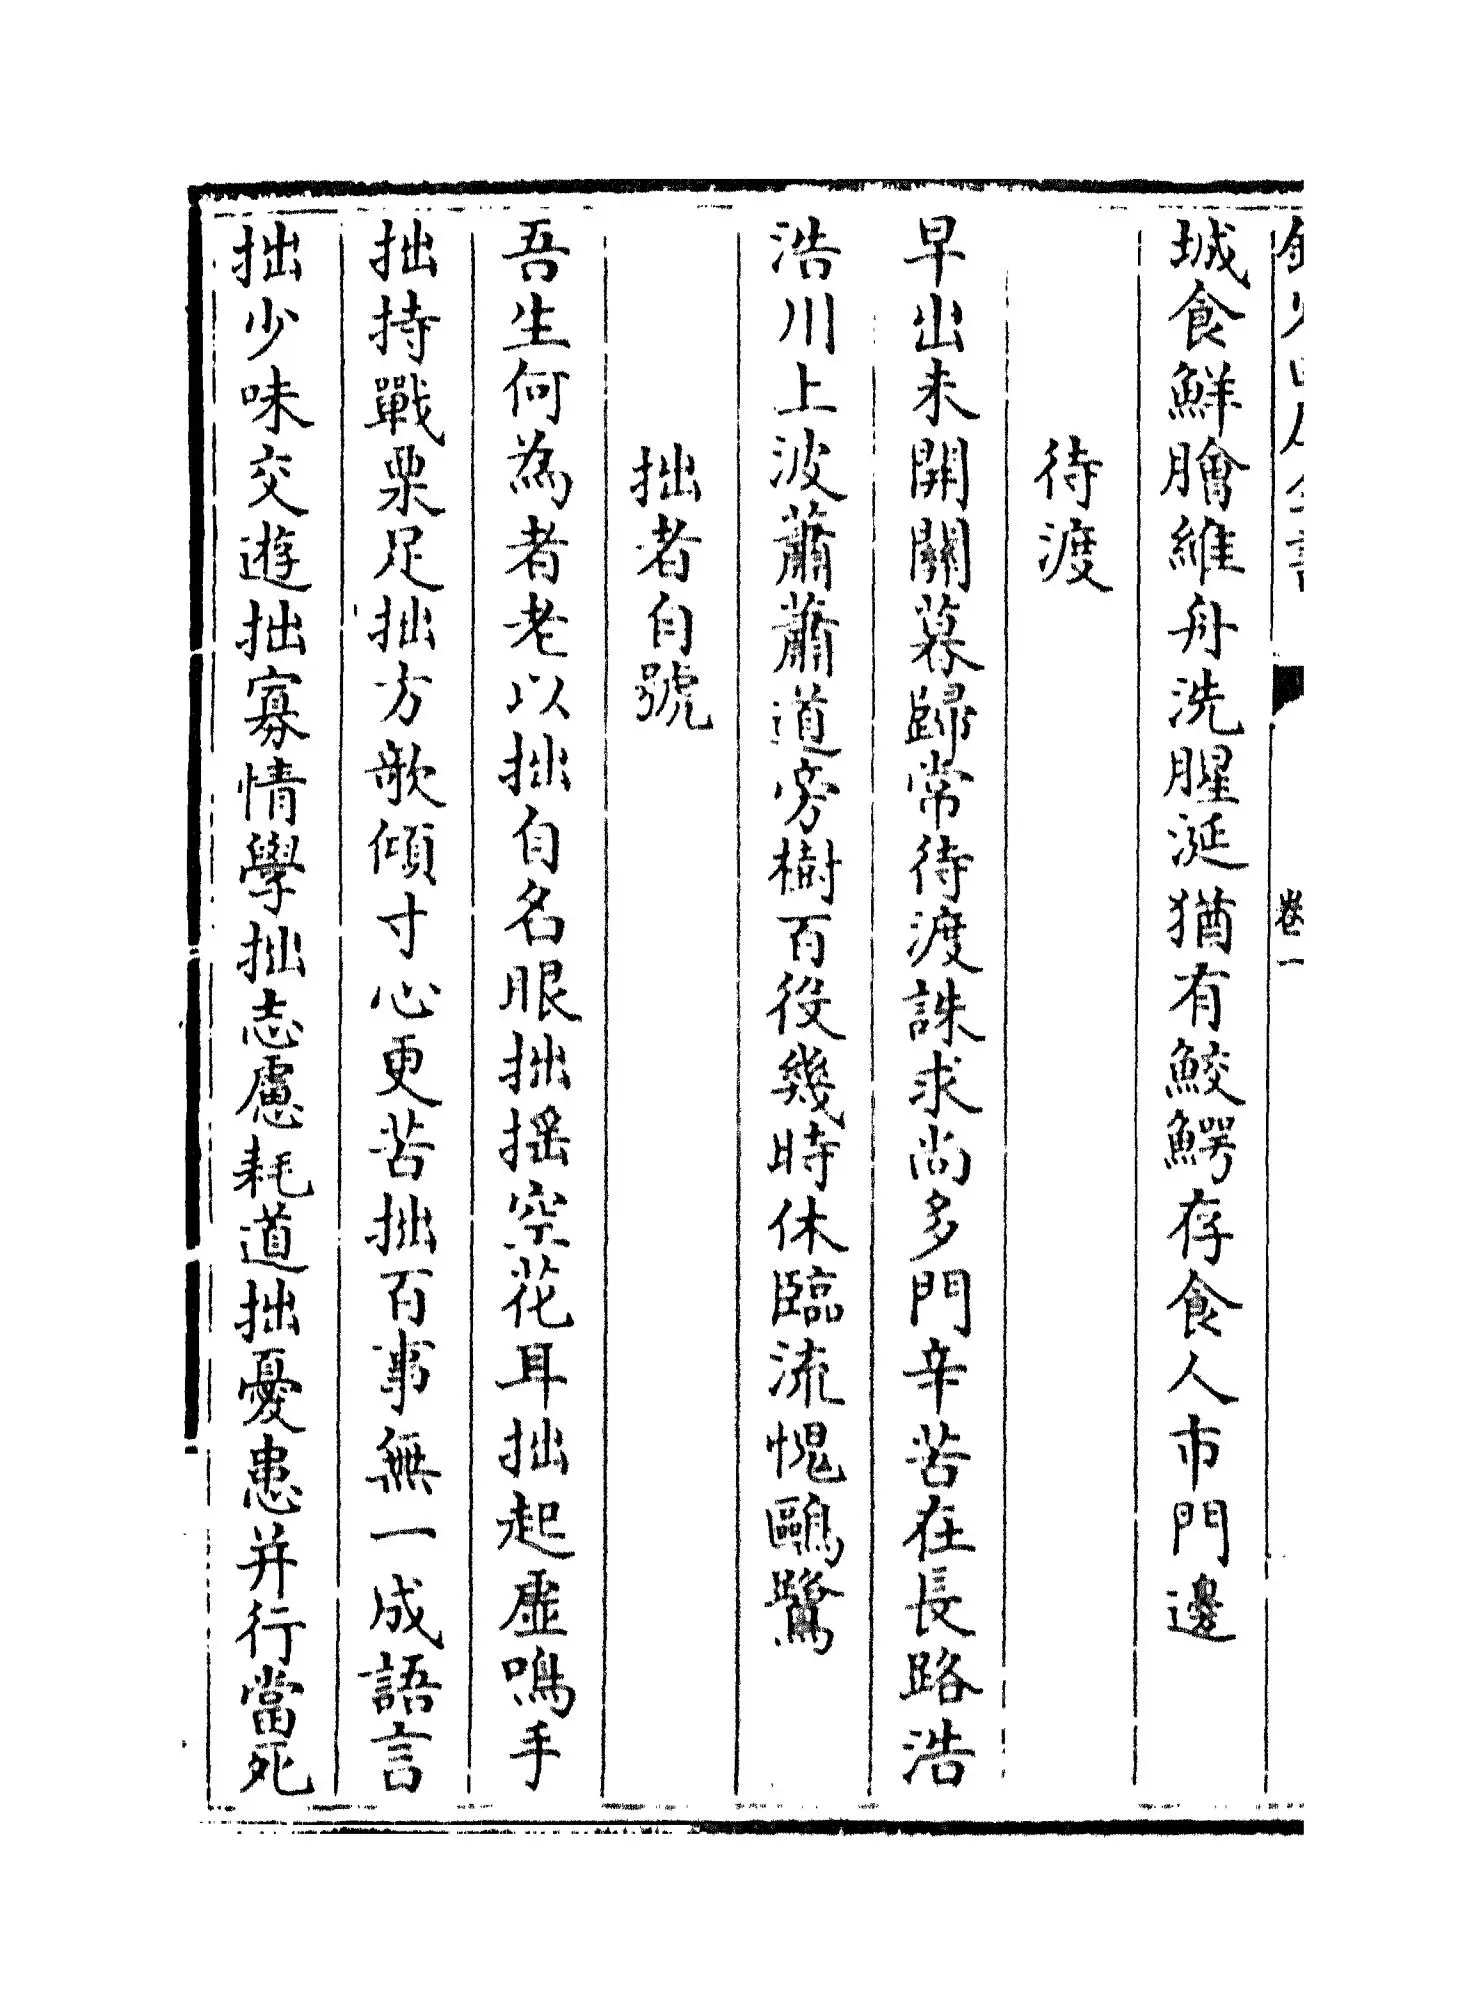 欽定四庫全書
卷一
城食鮮膾維舟洗腥涎猶有鮫鰐存食人市門邊
待渡
早出未開關暮歸常待渡誅求尚多門辛苦在長路浩
浩川上波蕭蕭道旁樹百役幾時休臨流愧鷗鷺
拙者自號
吾生何為者老以拙自名眼拙搖空花耳拙起虛鳴手
拙持戰栗足拙方欹傾寸心更苦拙百事無一成語言
拙少味交遊拙寡情學拙志慮耗道拙憂患并行當死